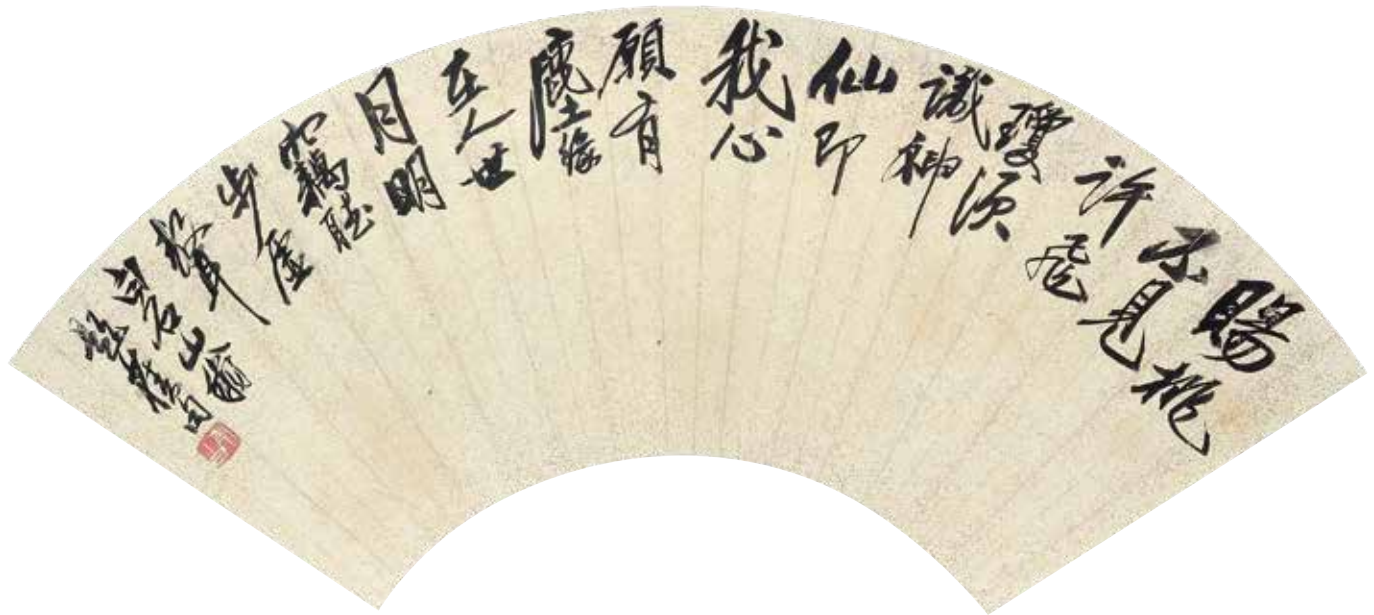 賜桃
不見
許飛
瓊須
識神
仙即
我心
願有
塵緣
在人世
月明
聽
步虛
聲
石山